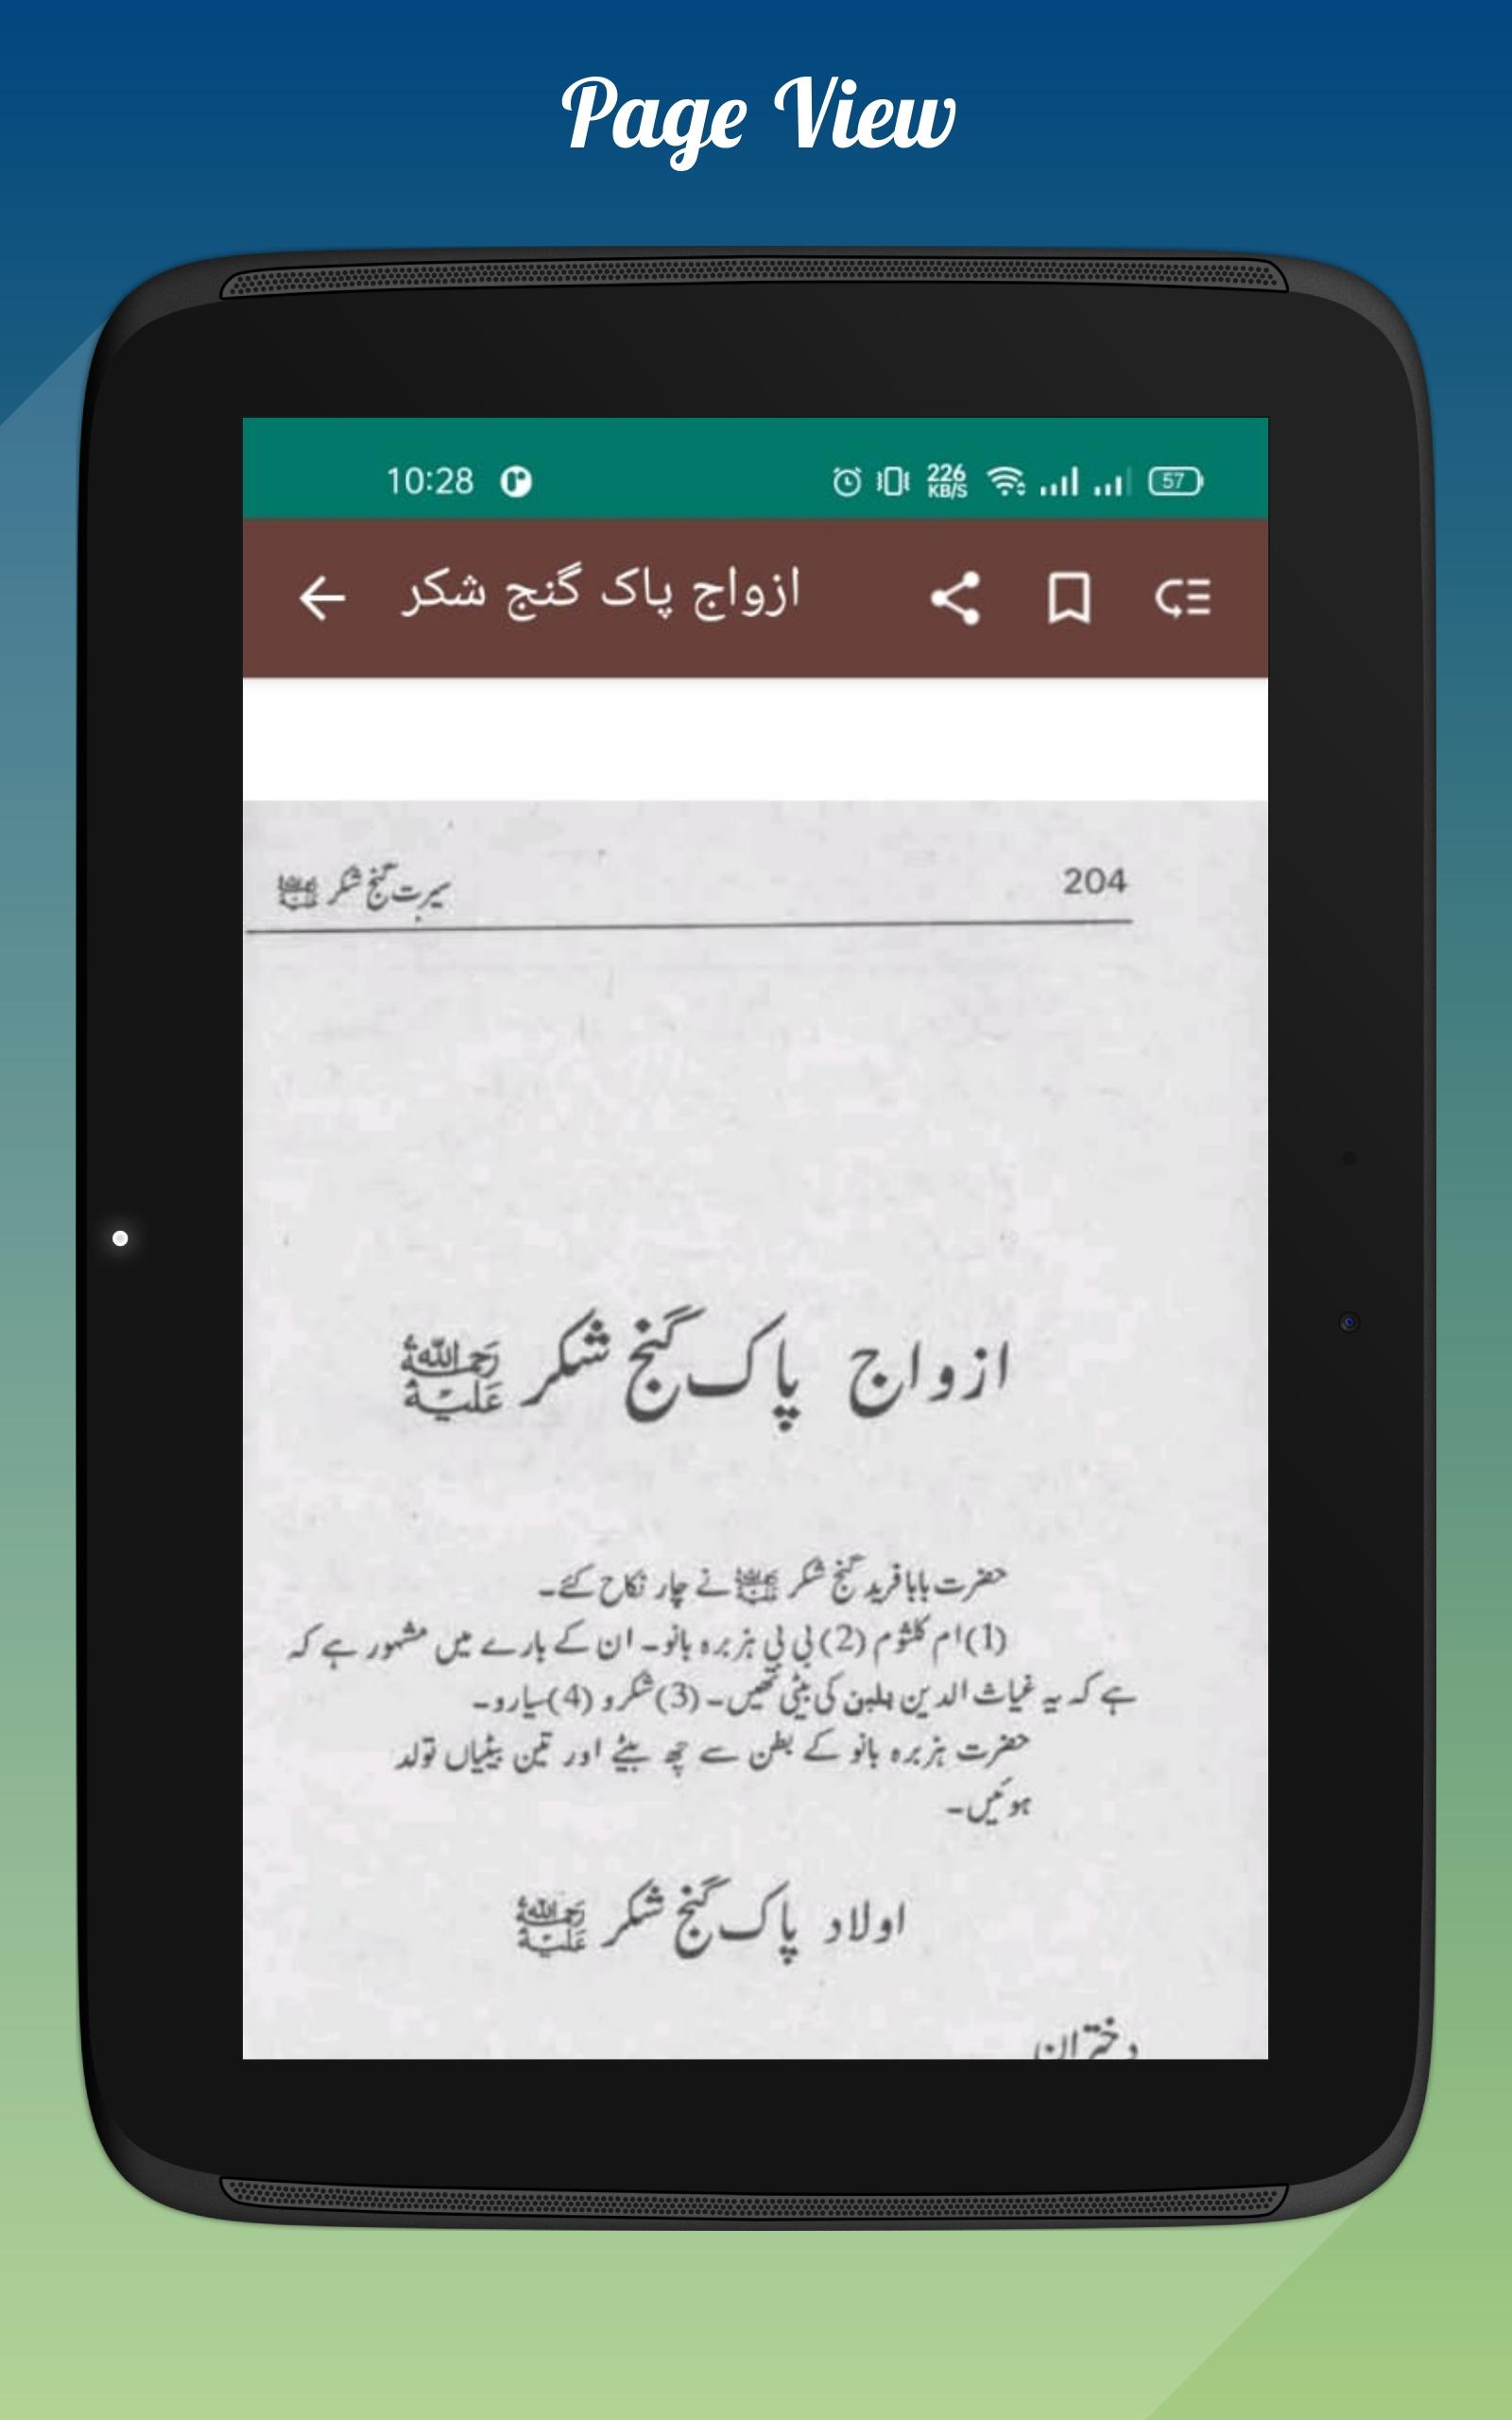 Page View
10:28
226 KB/S
57
ازواج پاک گنج شکر
204
سیرت گنج شکر رحمۃ اللہ علیہ
ازواج پاک گنج شکر رَحمۃُ اللہ عَلَیْہ
حضرت بابا فرید گنج شکر رحمۃ اللہ علیہ نے چار نکاح کئے۔
(1) ام کلثوم (2) بی بی ہزبرہ بانو۔ ان کے بارے میں مشہور ہے کہ
ہے کہ یہ غیاث الدین بلبن کی بیٹی تھیں۔ (3) شکرو (4) سارو۔
حضرت ہزبرہ بانو کے بطن سے چھ بیٹے اور تین بیٹیاں تولد
ہوئیں۔
اولاد پاک گنج شکر رَحمۃُ اللہ عَلَیْہ
دختران